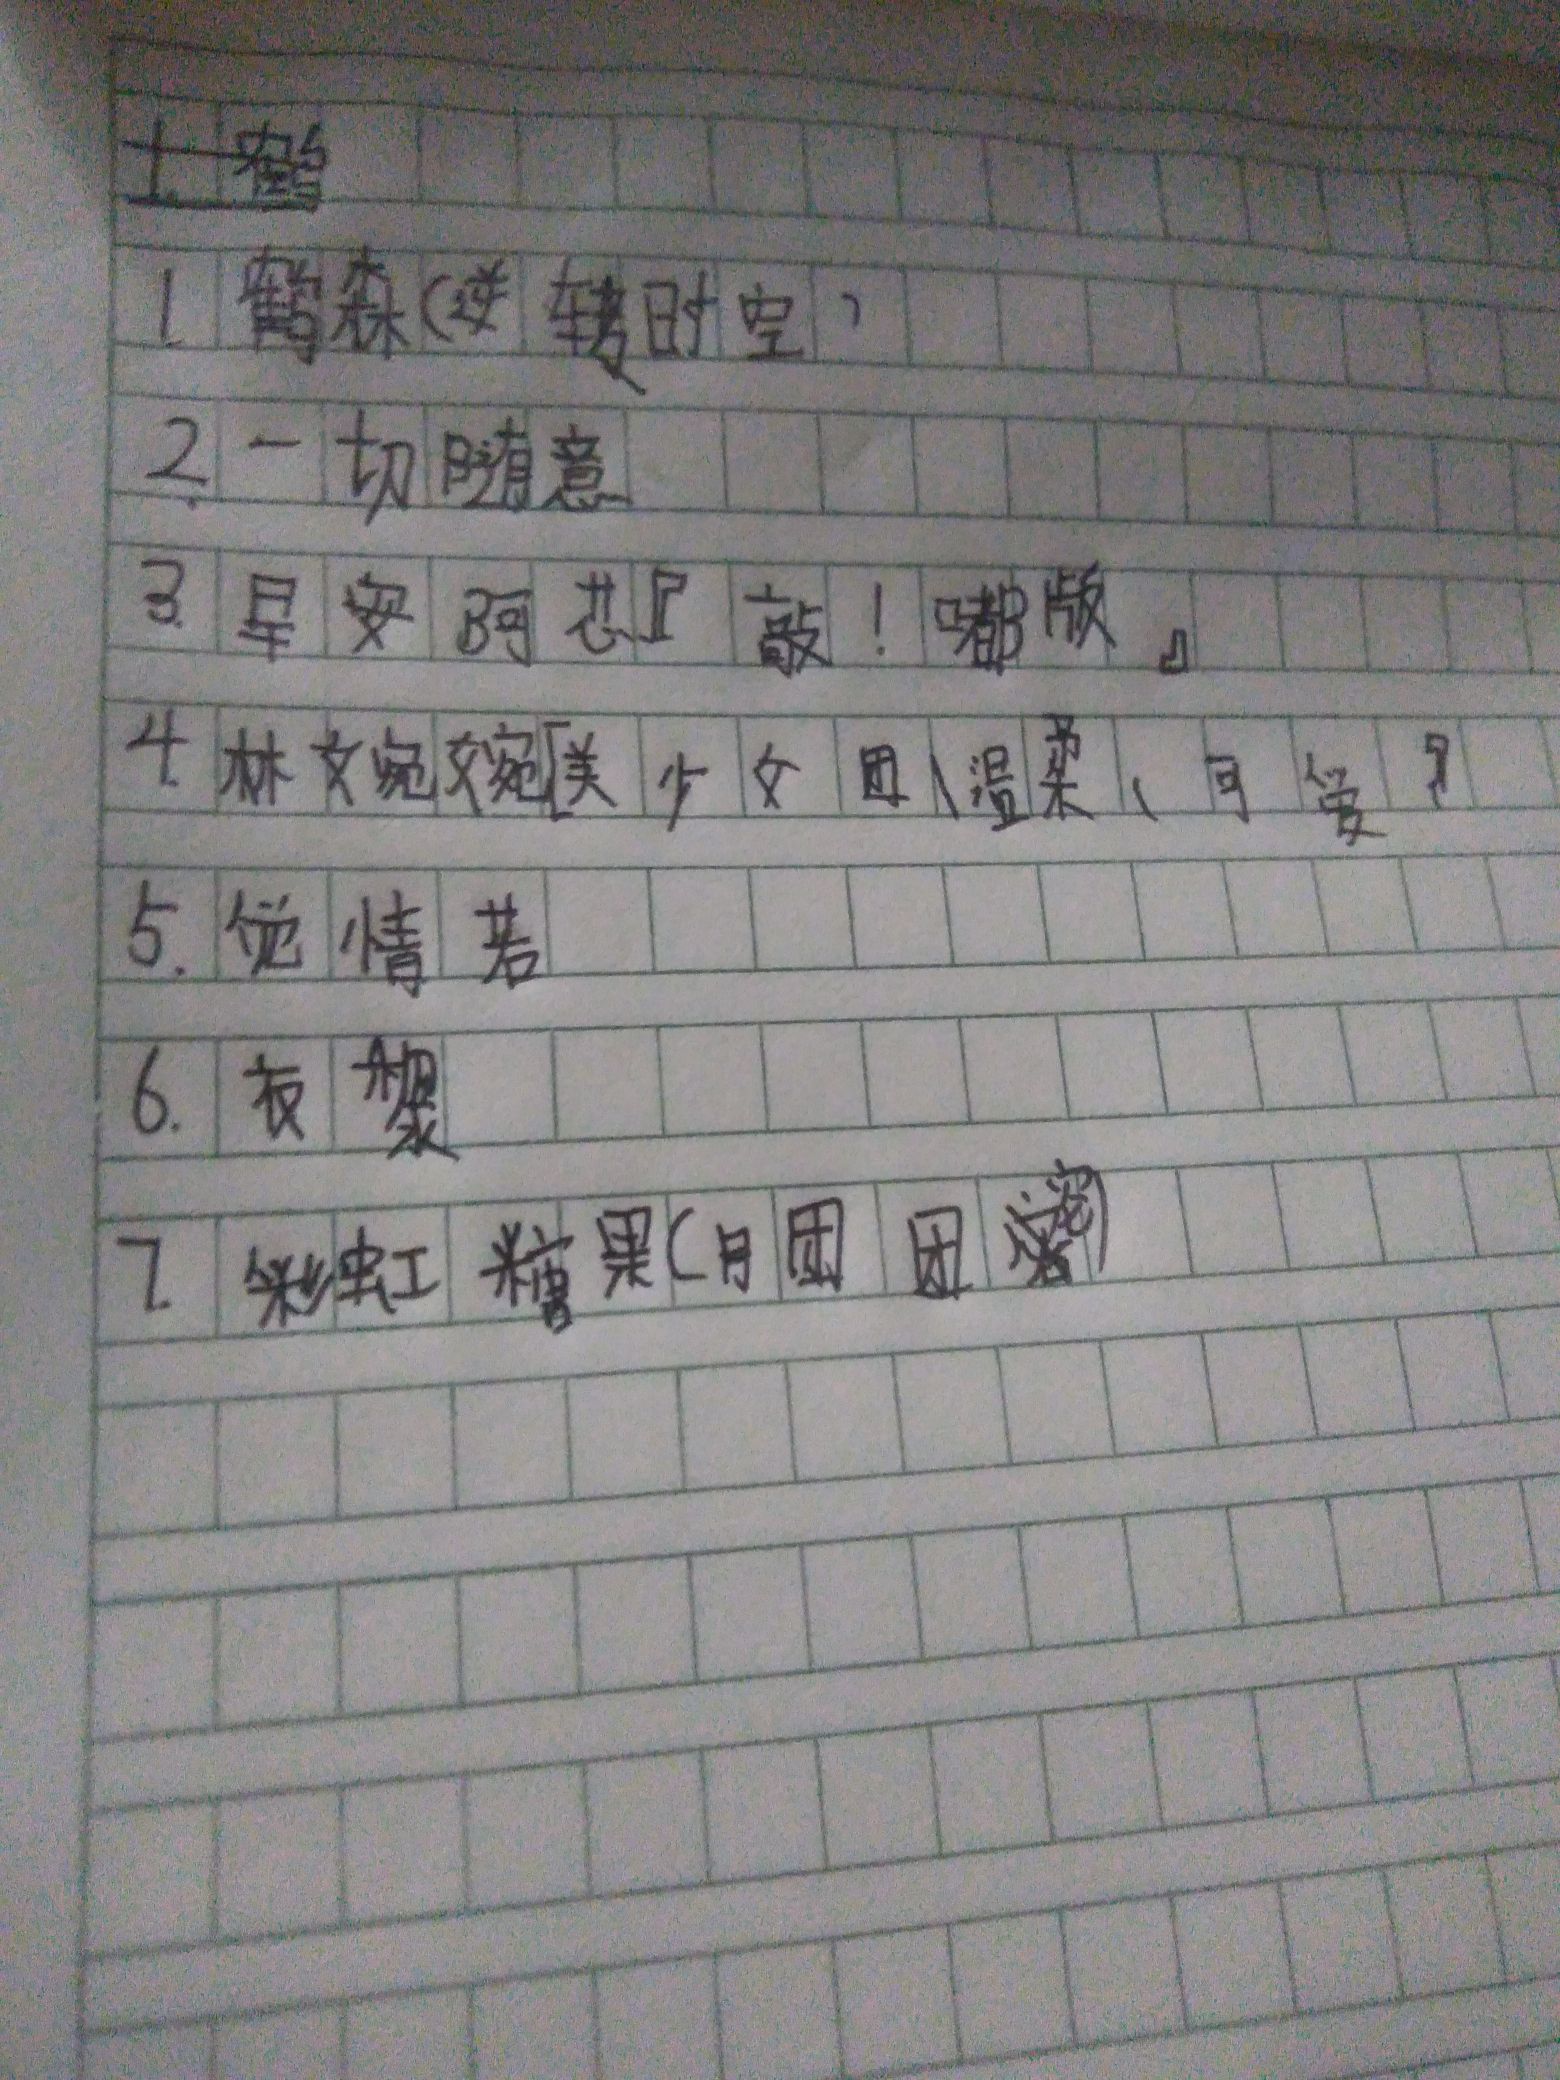 1. 鹤
1. 鹤森(逆转时空)
2. 一切随意
3. 星安阿芯『敲!嘟版』
4. 林文婉婉[美少女团、温柔、可爱]
5. 觉情若
6. 夜黎
7. 彩虹糖果(月团团)